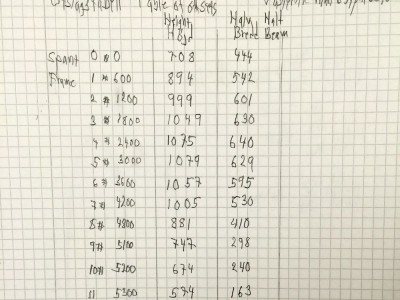 Table of offsets
Height Halv Half
Højd Bredd Beam
Spant 0 * 0 708 444
Frame 1 * 600 894 542
2 * 1200 999 601
3 * 1800 1049 630
4 * 2400 1075 640
5 * 3000 1079 629
6 * 3600 1057 595
7 * 4200 1005 530
8 * 4800 881 410
9 * 5100 747 298
10 * 5200 674 240
11 5300 574 163